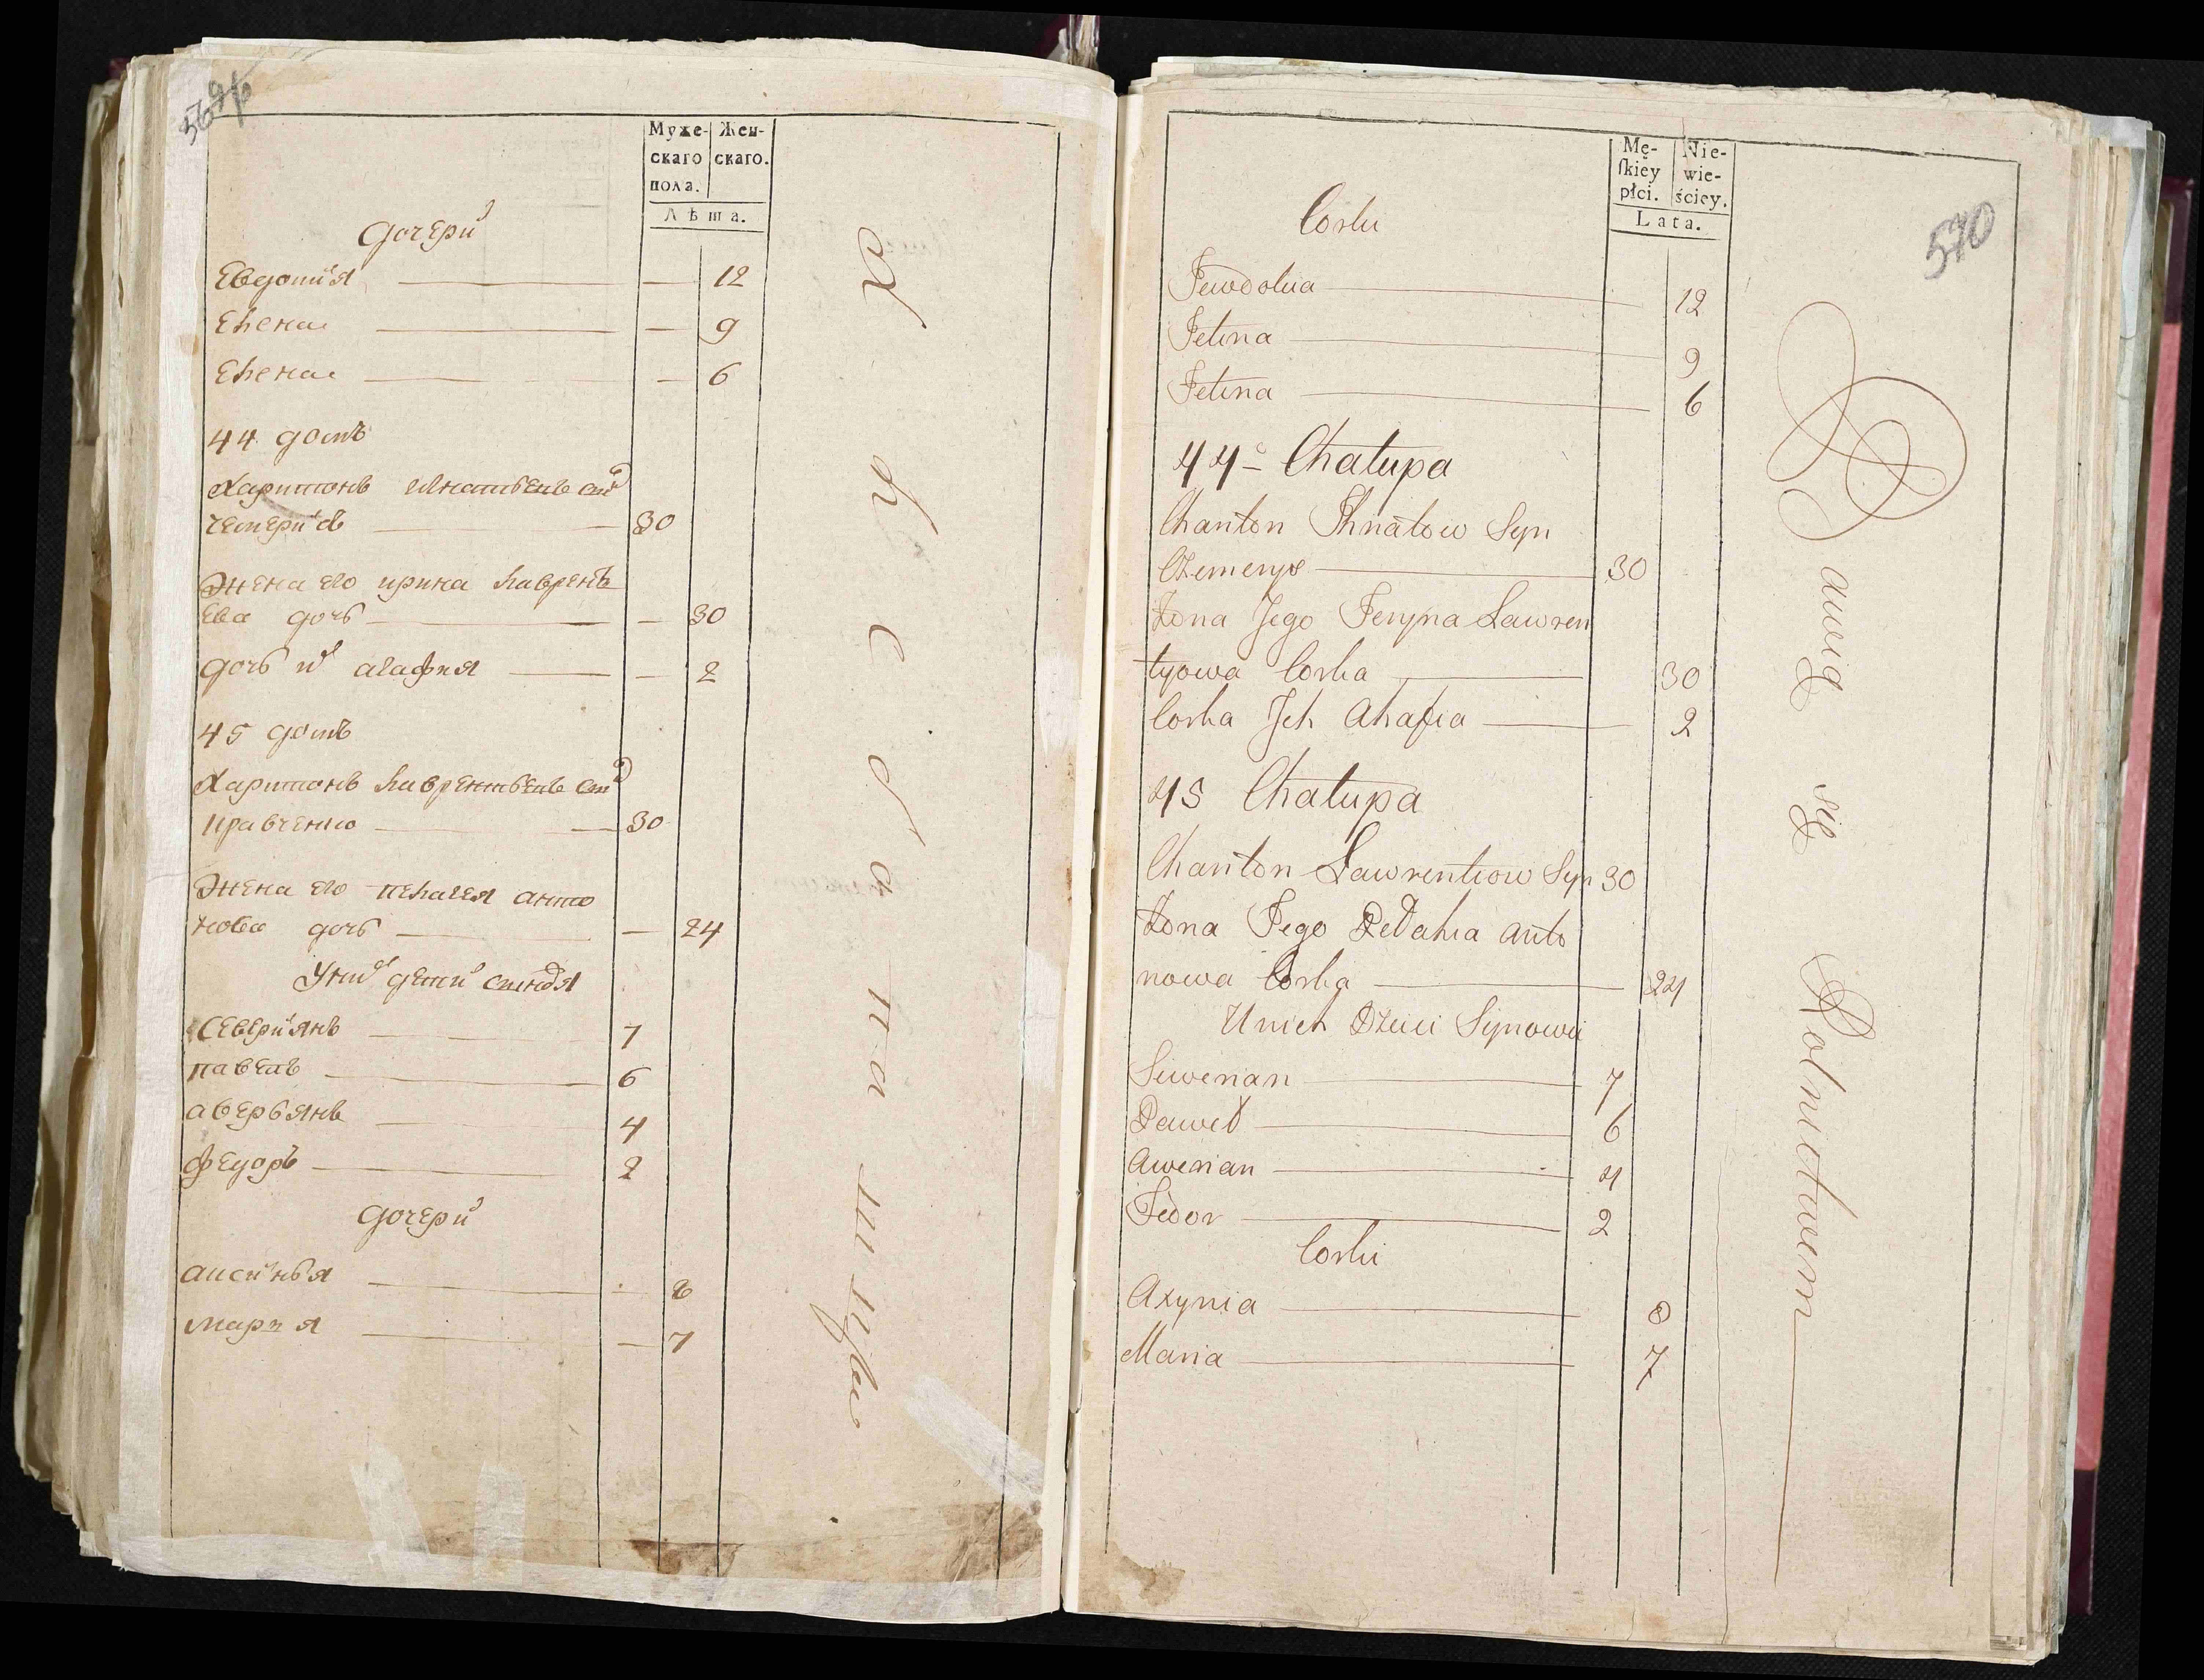 569об
Муже- Жен-
скаго скаго.
пола.
Лѣта.
дочери
Евдотия — 12
Елена — 9
Елена — 6
44 домъ
Харитонъ Игнатьевъ сынъ
чемерисъ — 30
Жена его ирина лаврентъ
ева дочь — 30
дочь их агафия — 2
45 домъ
Харитонъ лаврентьевъ сынъ
кравченко — 30
Жена его пелагея анто
нова дочь — 24
У них дети сыновя
Севериянъ — 7
павелъ — 6
аверьянъ — 4
федоръ — 2
дочери
аксинья — 8
марья — 7
570
Mę- Nie-
ſkiey wie-
płci. ściey.
Lata.
Corki
Jewdokia — 12
Jelina — 9
Jelina — 6
44 Chałupa
Chariton Ihnatow Syn
Czemerys — 30
Żona Jego Jeryna Lawren
tyowa Corka — 30
Corka Jch Ahafia — 2
45 Chałupa
Chariton Lawrentiow Syn 30
Żona Jego Pełahia Anto
nowa Corka — 24
Unich Dzieci Synowie
Siwerian — 7
Paweł — 6
Awerian — 4
Fedor — 2
Corki
Axynia — 8
Maria — 7
Bawią się Rolnictwem